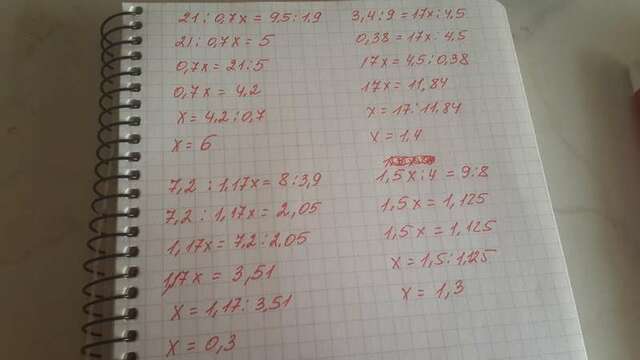 21 : 0,7x = 9,5 : 1,9
21 : 0,7x = 5
0,7x = 21 : 5
0,7x = 4,2
x = 4,2 : 0,7
x = 6
3,4 : 9 = 17x : 4,5
0,38 = 17x : 4,5
17x = 4,5 : 0,38
17x = 11,84
x = 17 : 11,84
x = 1,4
7,2 : 1,17x = 8 : 3,9
7,2 : 1,17x = 2,05
1,17x = 7,2 : 2,05
1,17x = 3,51
x = 1,17 : 3,51
x = 0,3
1,5x : 4 = 9 : 8
1,5x = 1,125
1,5x = 1,125
x = 1,5 : 1,125
x = 1,3